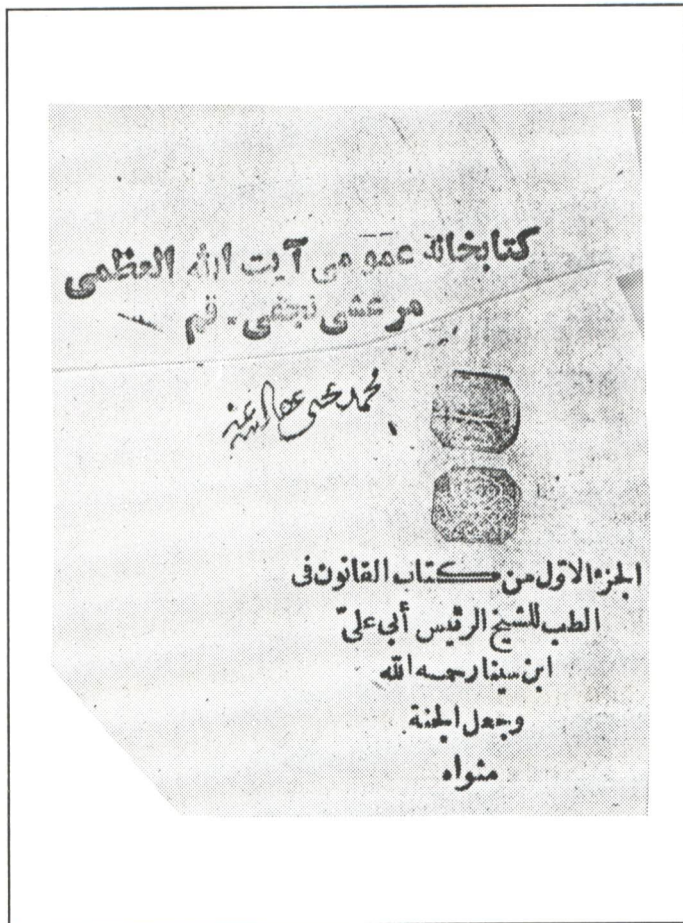 كتابخانه عمومی آیت الله العظمی
مرعشی نجفی - قم
محمد یحیی عفا الله عنه
الجزء الاوّل من كتاب القانون فى
الطب للشيخ الرئيس أبى علىّ
ابن سينا رحمه الله
وجعل الجنة
مثواه